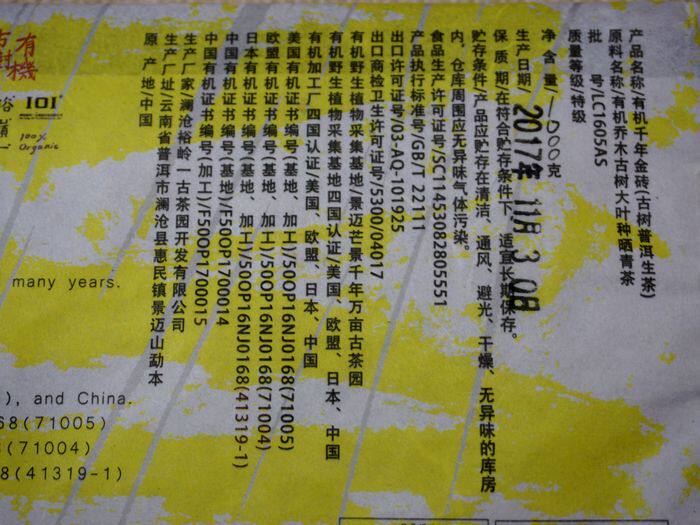 产品名称/有机千年金砖(古树普洱生茶)
原料名称/有机乔木古树大叶种晒青茶
批 号/LC1605AS
质量等级/特级
净 含 量/一000克
生产日期/ 2017年 11月 30日
保 质 期/在符合贮存条件下，适宜长期保存。
贮存条件/产品应贮存在清洁、通风、避光、干燥、无异味的库房
内，仓库周围应无异味气体污染。
食品生产许可证号/SC11453082805551
产品执行标准号/GB/T 22111
出口许可证号/03-AQ-101925
出口商检卫生许可证号/5300/04017
有机野生植物采集基地/景迈芒景千年万亩古茶园
有机野生植物采集基地四国认证/美国、欧盟、日本、中国
有机加工厂四国认证/美国、欧盟、日本、中国
美国有机证书编号(基地、加工)/50OP16NJ0168(71005)
欧盟有机证书编号(基地、加工)/50OP16NJ0168(71004)
日本有机证书编号(基地、加工)/50OP16NJ0168(41319-1)
中国有机证书编号(基地)/F50OP1700014
中国有机证书编号(加工)/F50OP1700015
生产厂家/澜沧裕岭一古茶园开发有限公司
生产厂址/云南省普洱市澜沧县惠民镇景迈山勐本
原 产 地/中国
有機
101
100%
Organic
many years.
), and China.
68(71005)
(71004)
8(41319-1)